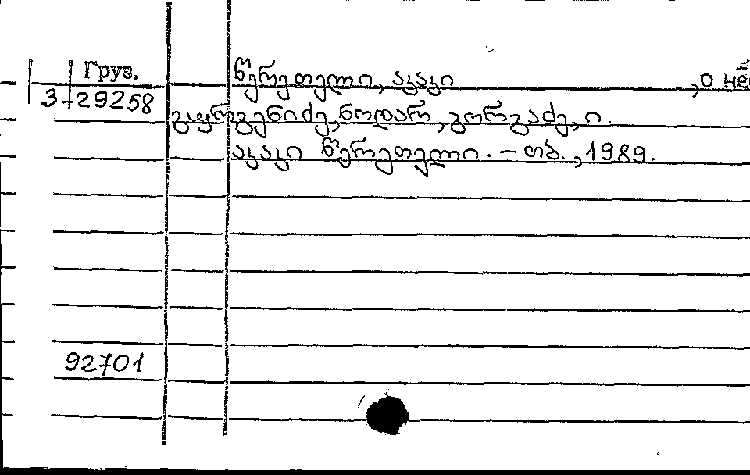 Груз.
წერეთელი, აკაკი , о нём
3-29258
გაფრინდაშვილი, ნოდარ, გორგაძე, ი.
აკაკი წერეთელი. – თბ., 1989.
92701